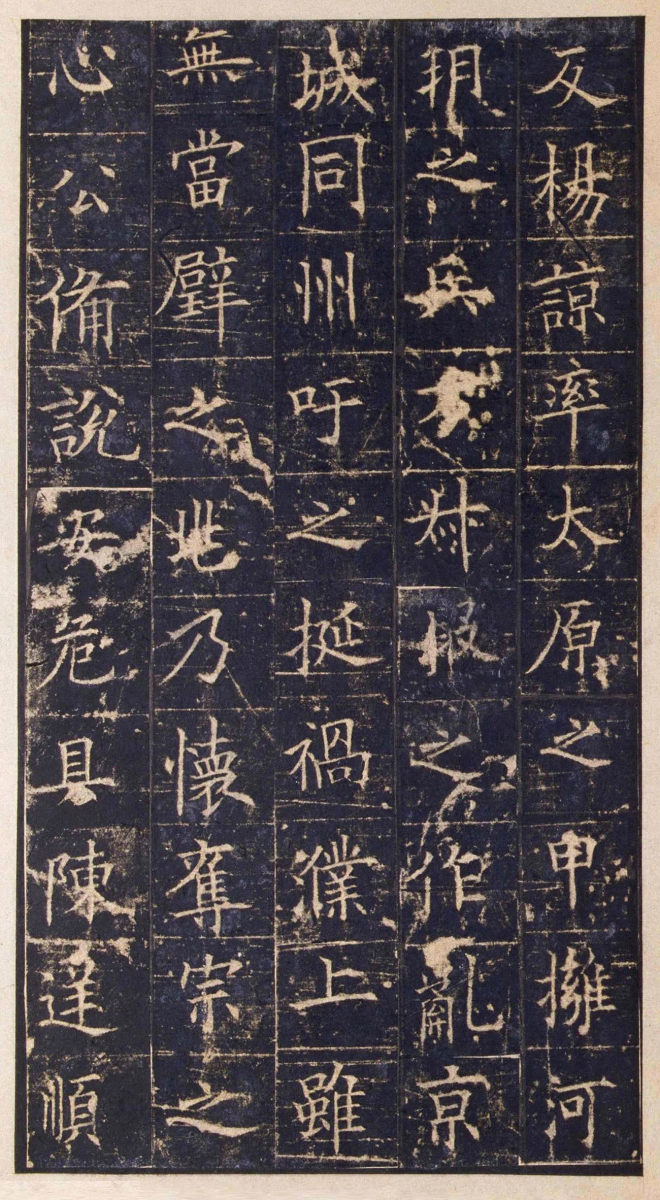 反楊諒率太原之甲擁河
朔之兵方叔段之作亂京
城同州吁之挺禍濮上雖
無當璧之兆乃懷奪宗之
心公備說安危具陳逆順